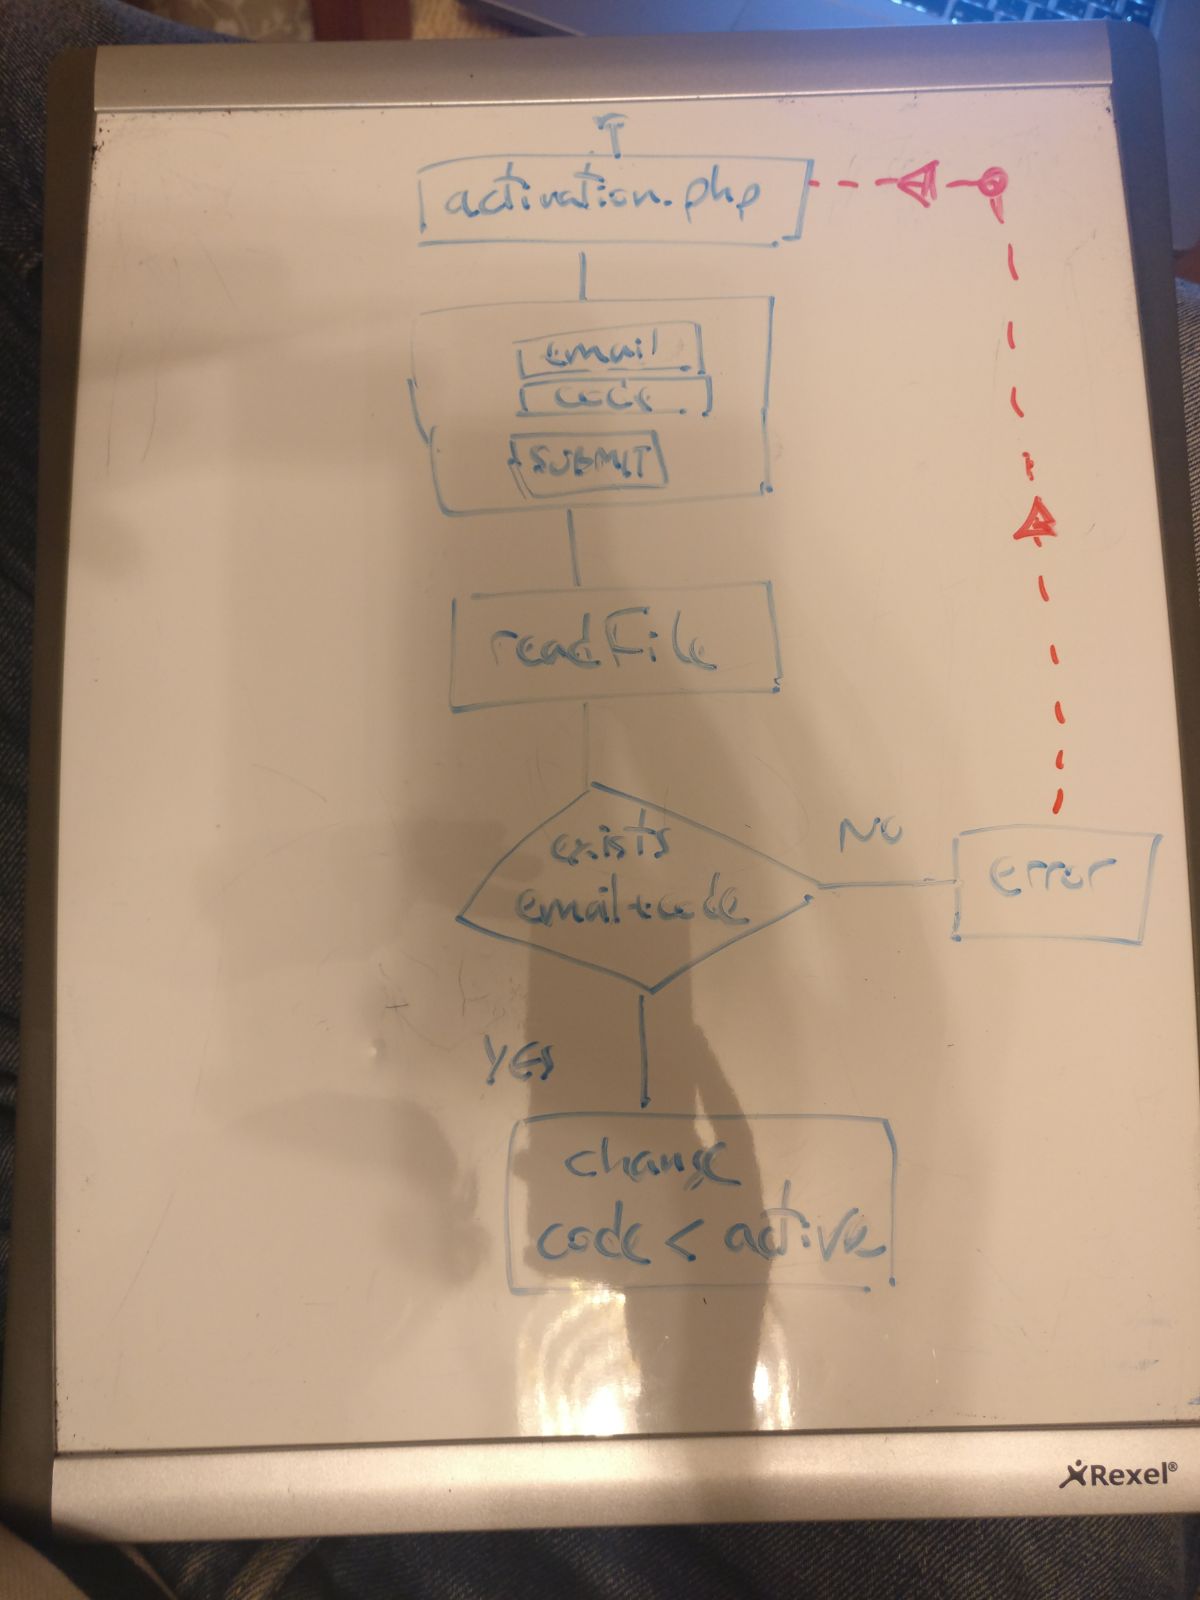 activation.php
email
code
SUBMIT
readFile
exists
email+code
NO
error
YES
change
code < active
Rexel®